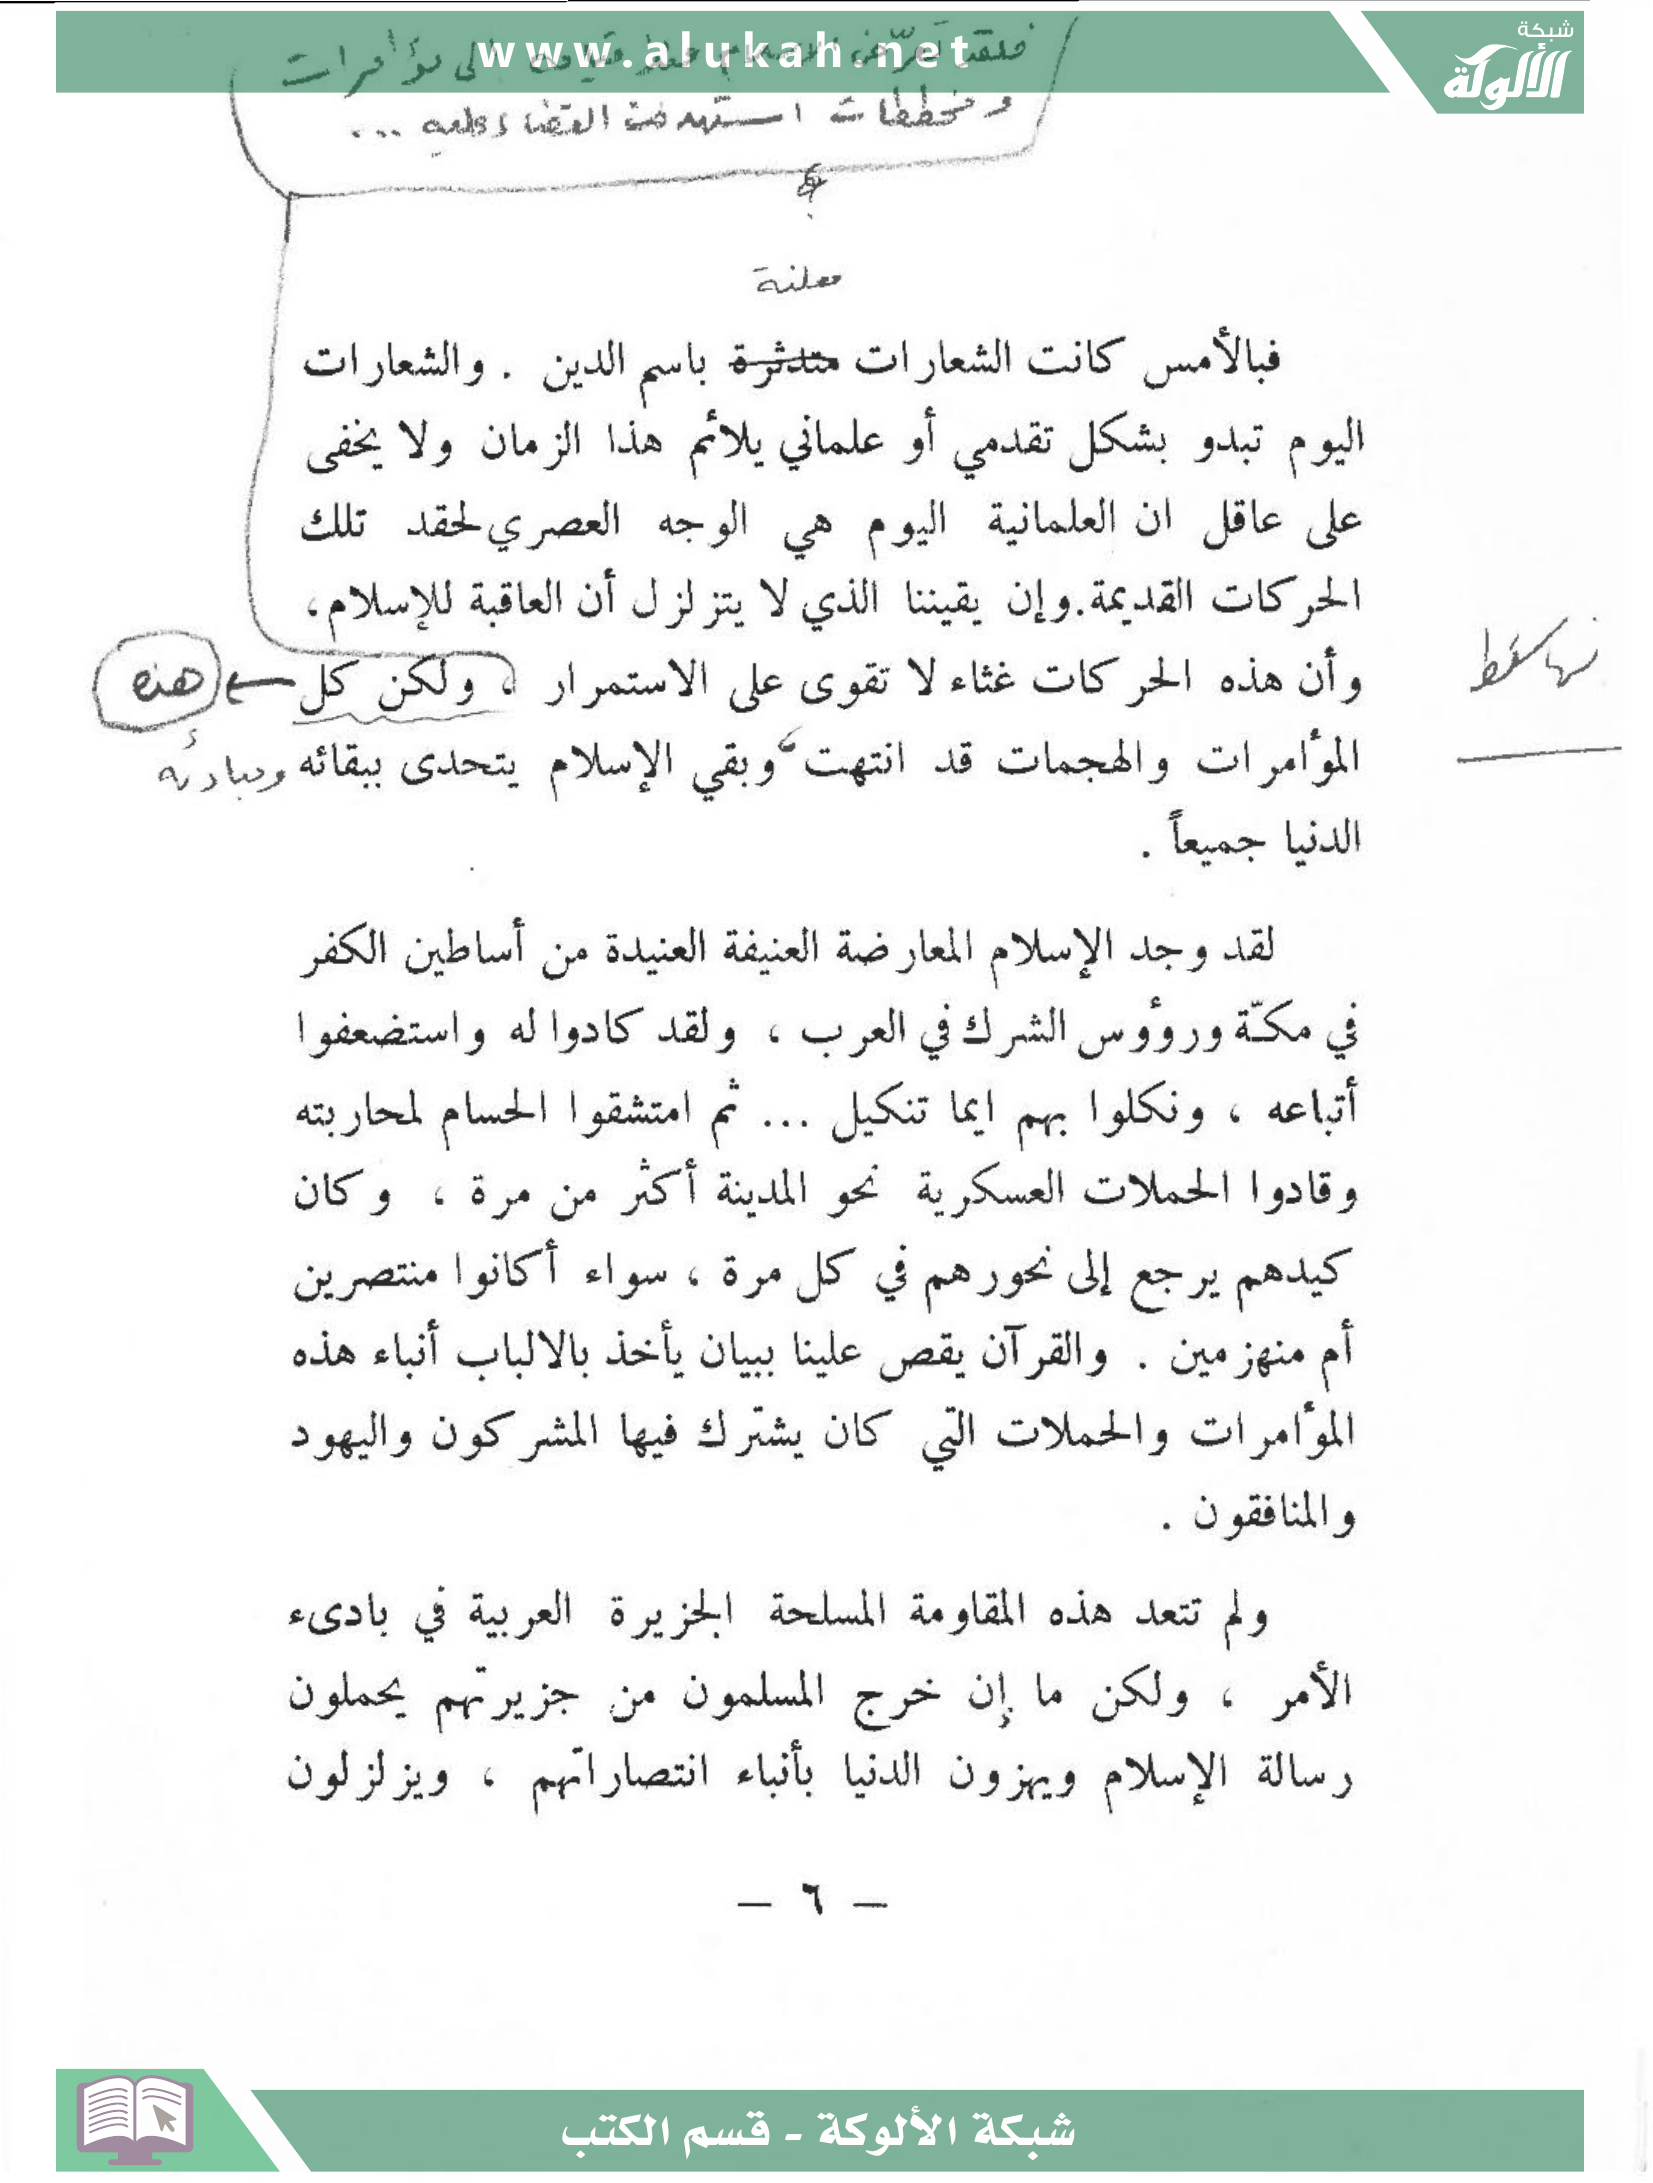 شبكة
الألوكة
www.alukah.net
فلقد تعرّض الإسلام إلى مؤامرات
ومخططات استهدفت القضاء عليه ...
معلنة
فبالأمس كانت الشعارات متدثرة باسم الدين . والشعارات
اليوم تبدو بشكل تقدمي أو علماني يلائم هذا الزمان ولا يخفى
على عاقل ان العلمانية اليوم هي الوجه العصري لحقد تلك
الحركات القديمة.وإن يقيننا الذي لا يتزلزل أن العاقبة للإسلام،
وأن هذه الحركات غثاء لا تقوى على الاستمرار ، ولكن كل هذه
المؤامرات والهجمات قد انتهت وبقي الإسلام يتحدى ببقائه ومبادئه
الدنيا جميعاً .
لقد وجد الإسلام المعارضة العنيفة العنيدة من أساطين الكفر
في مكّة ورؤوس الشرك في العرب ، ولقد كادوا له واستضعفوا
أتباعه ، ونكلوا بهم ايما تنكيل ... ثم امتشقوا الحسام لمحاربته
وقادوا الحملات العسكرية نحو المدينة أكثر من مرة ، وكان
كيدهم يرجع إلى نحورهم في كل مرة ، سواء أكانوا منتصرين
أم منهزمين . والقرآن يقص علينا ببيان يأخذ بالالباب أنباء هذه
المؤامرات والحملات التي كان يشترك فيها المشركون واليهود
والمنافقون .
ولم تتعد هذه المقاومة المسلحة الجزيرة العربية في بادىء
الأمر ، ولكن ما إن خرج المسلمون من جزيرتهم يحملون
رسالة الإسلام ويهزون الدنيا بأنباء انتصاراتهم ، ويزلزلون
— ٦ —
شبكة الألوكة - قسم الكتب